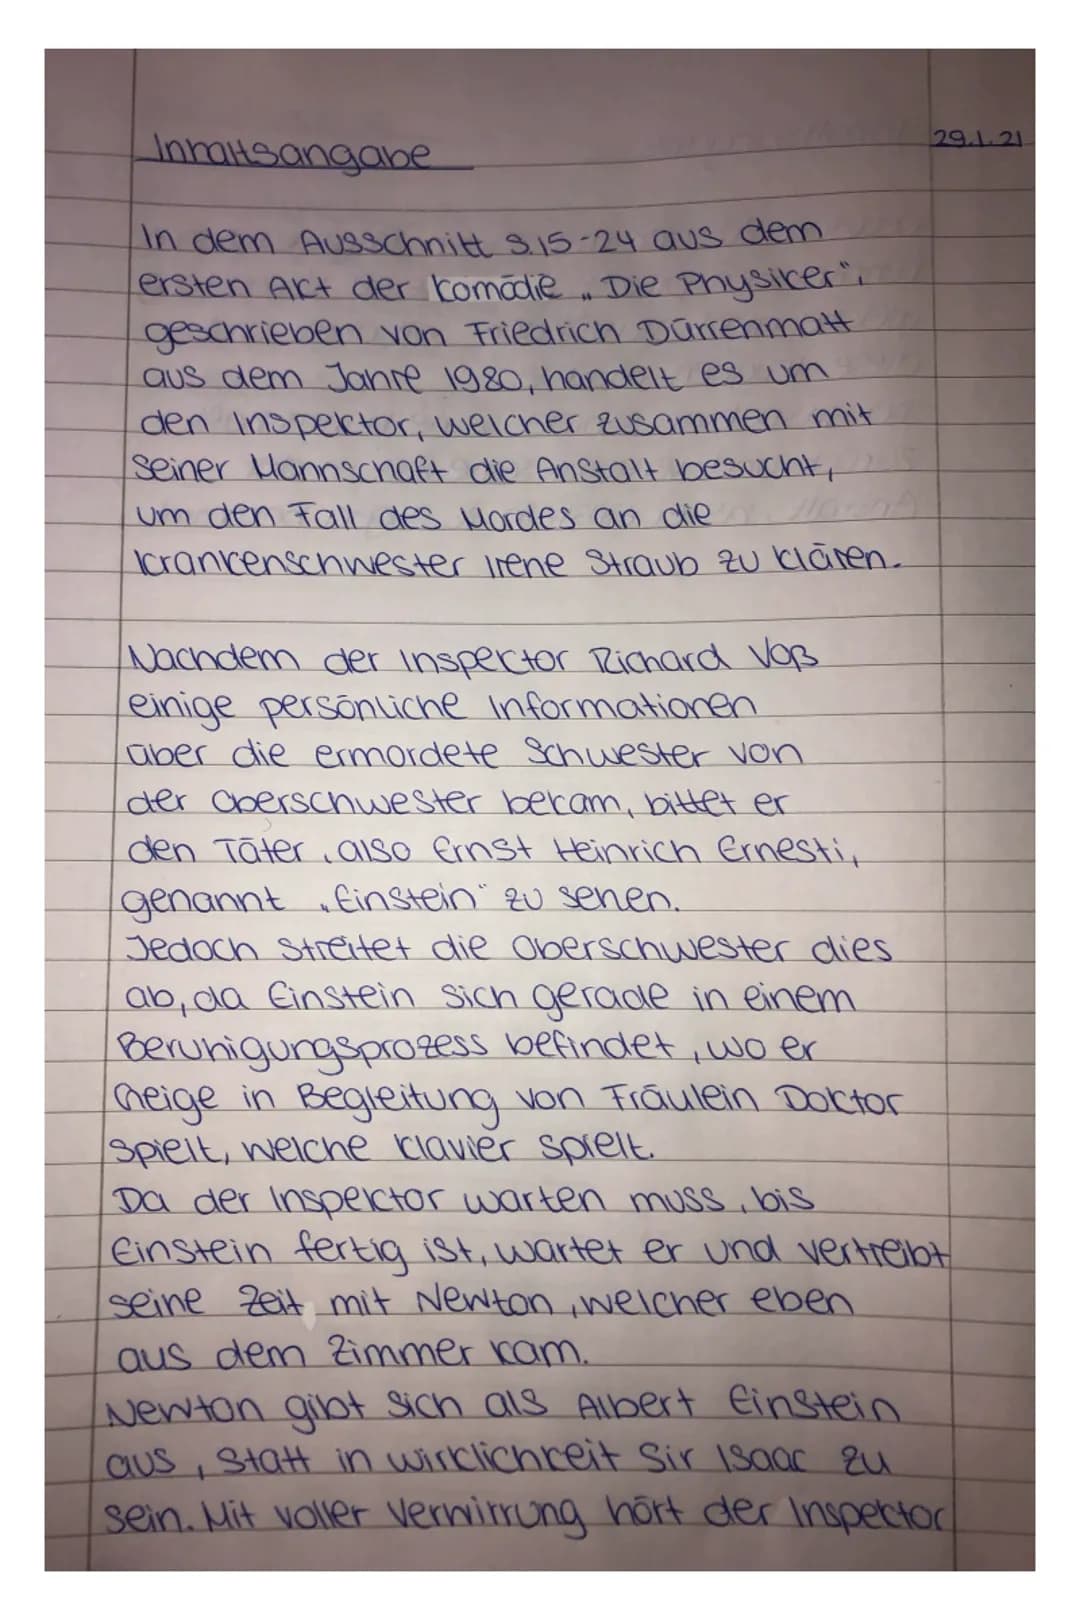 Inhaltsangabe
29.1.21
In dem Ausschnitt S.15-24 aus dem
ersten Akt der Komödie „Die Physiker",
geschrieben von Friedrich Dürrenmatt
aus dem Jahre 1980, handelt es um
den Inspektor, welcher zusammen mit
seiner Mannschaft die Anstalt besucht,
um den Fall des Mordes an die
Krankenschwester Irene Straub zu klären.
Nachdem der Inspector Richard Voß
einige persönliche Informationen
über die ermordete Schwester von
der Oberschwester bekam, bittet er
den Täter, also Ernst Heinrich Ernesti,
genannt „Einstein" zu sehen.
Jedoch streitet die Oberschwester dies
ab, da Einstein sich gerade in einem
Beruhigungsprozess befindet, wo er
Geige in Begleitung von Fräulein Doktor
spielt, welche Klavier spielt.
Da der Inspektor warten muss, bis
Einstein fertig ist, wartet er und vertreibt
seine Zeit mit Newton, welcher eben
aus dem Zimmer kam.
Newton gibt sich als Albert Einstein
aus, statt in wirklichkeit Sir Isaac zu
sein. Mit voller Verwirrung hört der Inspector